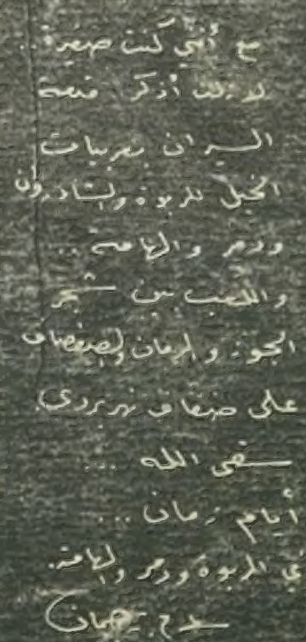 مع أنني كنت صغيرة..
لا زلت أذكر متعة
السيران بعربيات
الخيل للربوة والشادروان
ودمر والهامة ..
واللعب بين شجر
الجوز والرمان والصفصاف
على ضفاف نهر بردى
سقى الله ...
أيام زمان ...
في الربوة ودمر والهامة.